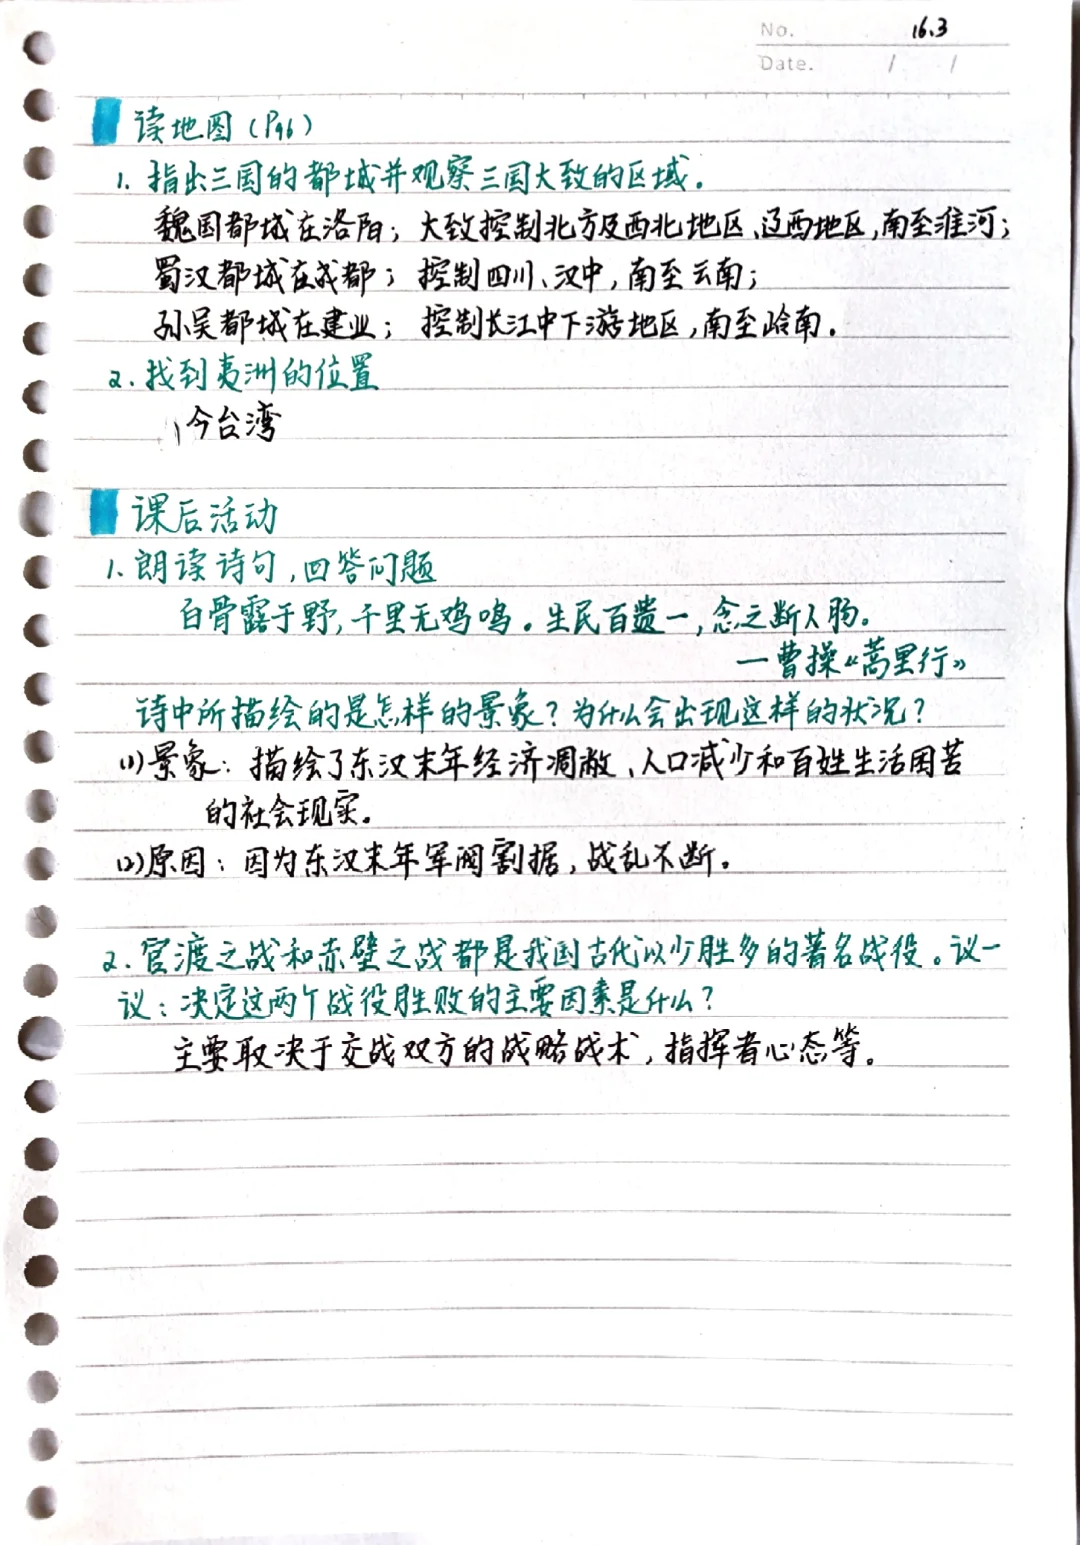 No. 16.3
Date. / /
读地图（P96）
1. 指出三国的都城并观察三国大致的区域.
魏国都城在洛阳; 大致控制北方及西北地区、辽西地区,南至淮河;
蜀汉都城在成都; 控制四川、汉中, 南至云南;
孙吴都城在建业; 控制长江中下游地区,南至岭南.
2. 找到夷洲的位置
今台湾
课后活动
1. 朗读诗句,回答问题
白骨露于野,千里无鸡鸣。生民百遗一,念之断人肠。
—曹操《蒿里行》
诗中所描绘的是怎样的景象? 为什么会出现这样的状况?
(1)景象: 描绘了东汉末年经济凋敝、人口减少和百姓生活困苦
的社会现实。
(2)原因: 因为东汉末年军阀割据,战乱不断。
2. 官渡之战和赤壁之战都是我国古代以少胜多的著名战役。议一
议: 决定这两个战役胜败的主要因素是什么?
主要取决于交战双方的战略战术,指挥者心态等。